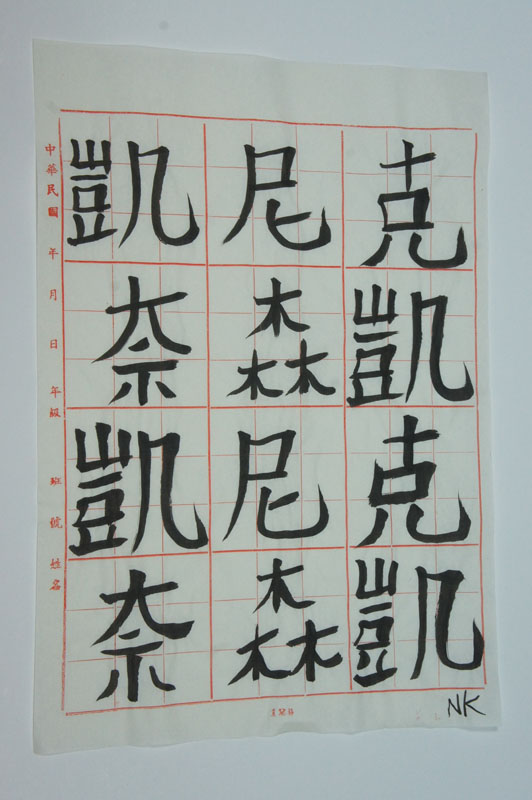 凱尼克
奈森凱
凱尼克
奈森凱
中華民國 年 月 日 年級 班 號 姓名
NK